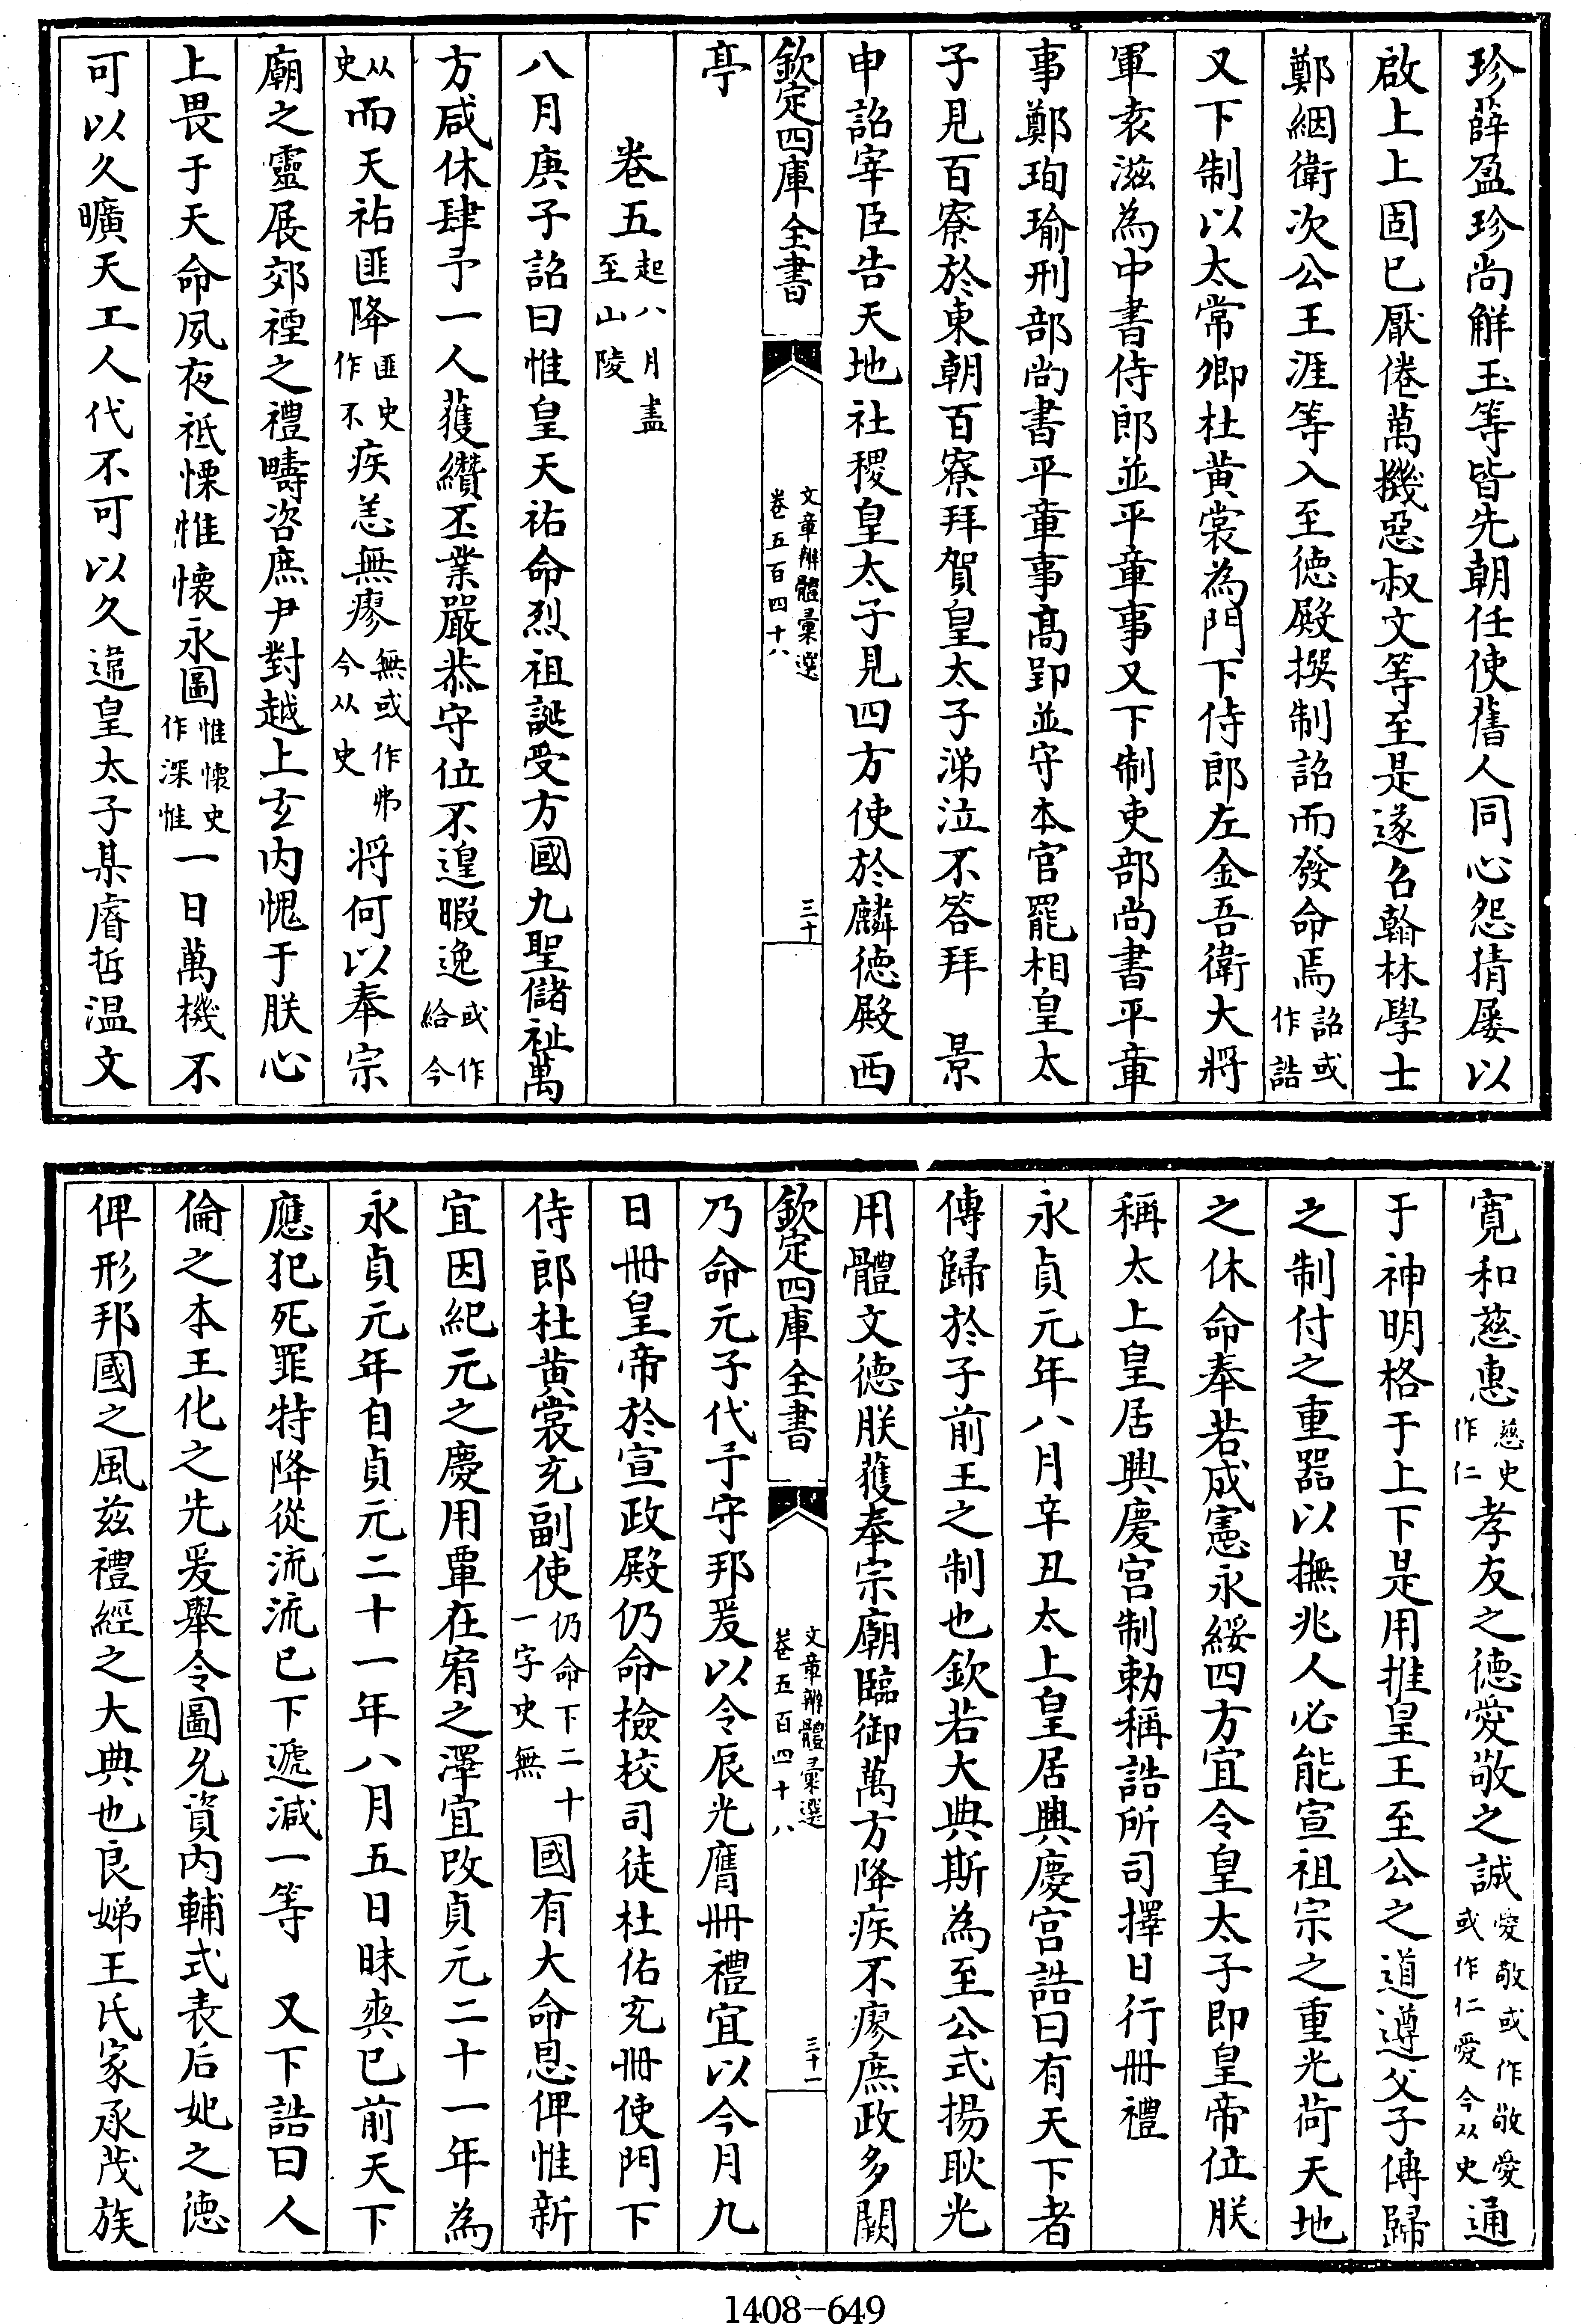 珍薛盈珍尚觧玉等皆先朝任使舊人同心怨猜屢以
啟上上固已厭倦萬機惡叔文等至是遂名翰林學士
鄭絪衛次公王涯等入至徳殿撰制詔而發命焉詔或作誥
又下制以太常卿杜黄裳為門下侍郎左金吾衛大將
軍袁滋為中書侍郎並平章事又下制吏部尚書平章
事鄭珣瑜刑部尚書平章事髙郢並守本官罷相皇太
子見百寮於東朝百寮拜賀皇太子涕泣不答拜　景
申詔宰臣告天地社稷皇太子見四方使於麟徳殿西
欽定四庫全書　文章辨體彙選　卷五百四十八　三十
亭
卷五起八月盡至山陵
八月庚子詔曰惟皇天祐命烈祖誕受方國九聖儲祉萬
方咸休肆予一人獲纘丕業嚴恭守位不遑暇逸或作給今
从史而天祐匪降匪史作不疾恙無瘳無或作弗今从史將何以奉宗
廟之靈展郊禋之禮疇咨庶尹對越上玄内愧于朕心
上畏于天命夙夜祗慄惟懷永圖惟懷史作深惟一日萬機不
可以久曠天工人代不可以久違皇太子某睿哲温文
寛和慈惠慈史作仁孝友之徳愛敬之誠愛敬或作敬愛或作仁愛今从史通
于神明格于上下是用推皇王至公之道遵父子傳歸
之制付之重器以撫兆人必能宣祖宗之重光荷天地
之休命奉若成憲永綏四方宜令皇太子即皇帝位朕
稱太上皇居興慶宫制勅稱誥所司擇日行冊禮
永貞元年八月辛丑太上皇居興慶宫誥曰有天下者
傳歸於子前王之制也欽若大典斯為至公式揚耿光
用體文徳朕獲奉宗廟臨御萬方降疾不瘳庶政多闕
欽定四庫全書　文章辨體彙選　卷五百四十八　三十一
乃命元子代予守邦爰以令辰光膺冊禮宜以今月九
日冊皇帝於宣政殿仍命檢校司徒杜佑充冊使門下
侍郎杜黄裳充副使仍命下二十一字史無國有大命恩俾惟新
宜因紀元之慶用覃在宥之澤宜改貞元二十一年為
永貞元年自貞元二十一年八月五日昧爽已前天下
應犯死罪特降從流流已下遞減一等　又下誥曰人
倫之本王化之先爰舉令圖允資内輔式表后妃之徳
俾形邦國之風兹禮經之大典也良娣王氏家承茂族
1408-649